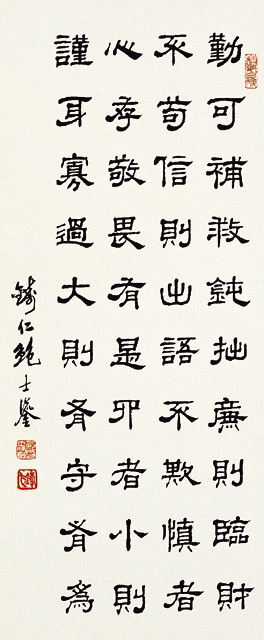 勤可補救鈍拙廉則臨財
不苟信則出語不欺慎者
心存敬畏有是四者小則
謹耳寡過大則有守有為
鑄仁鮑士鑒